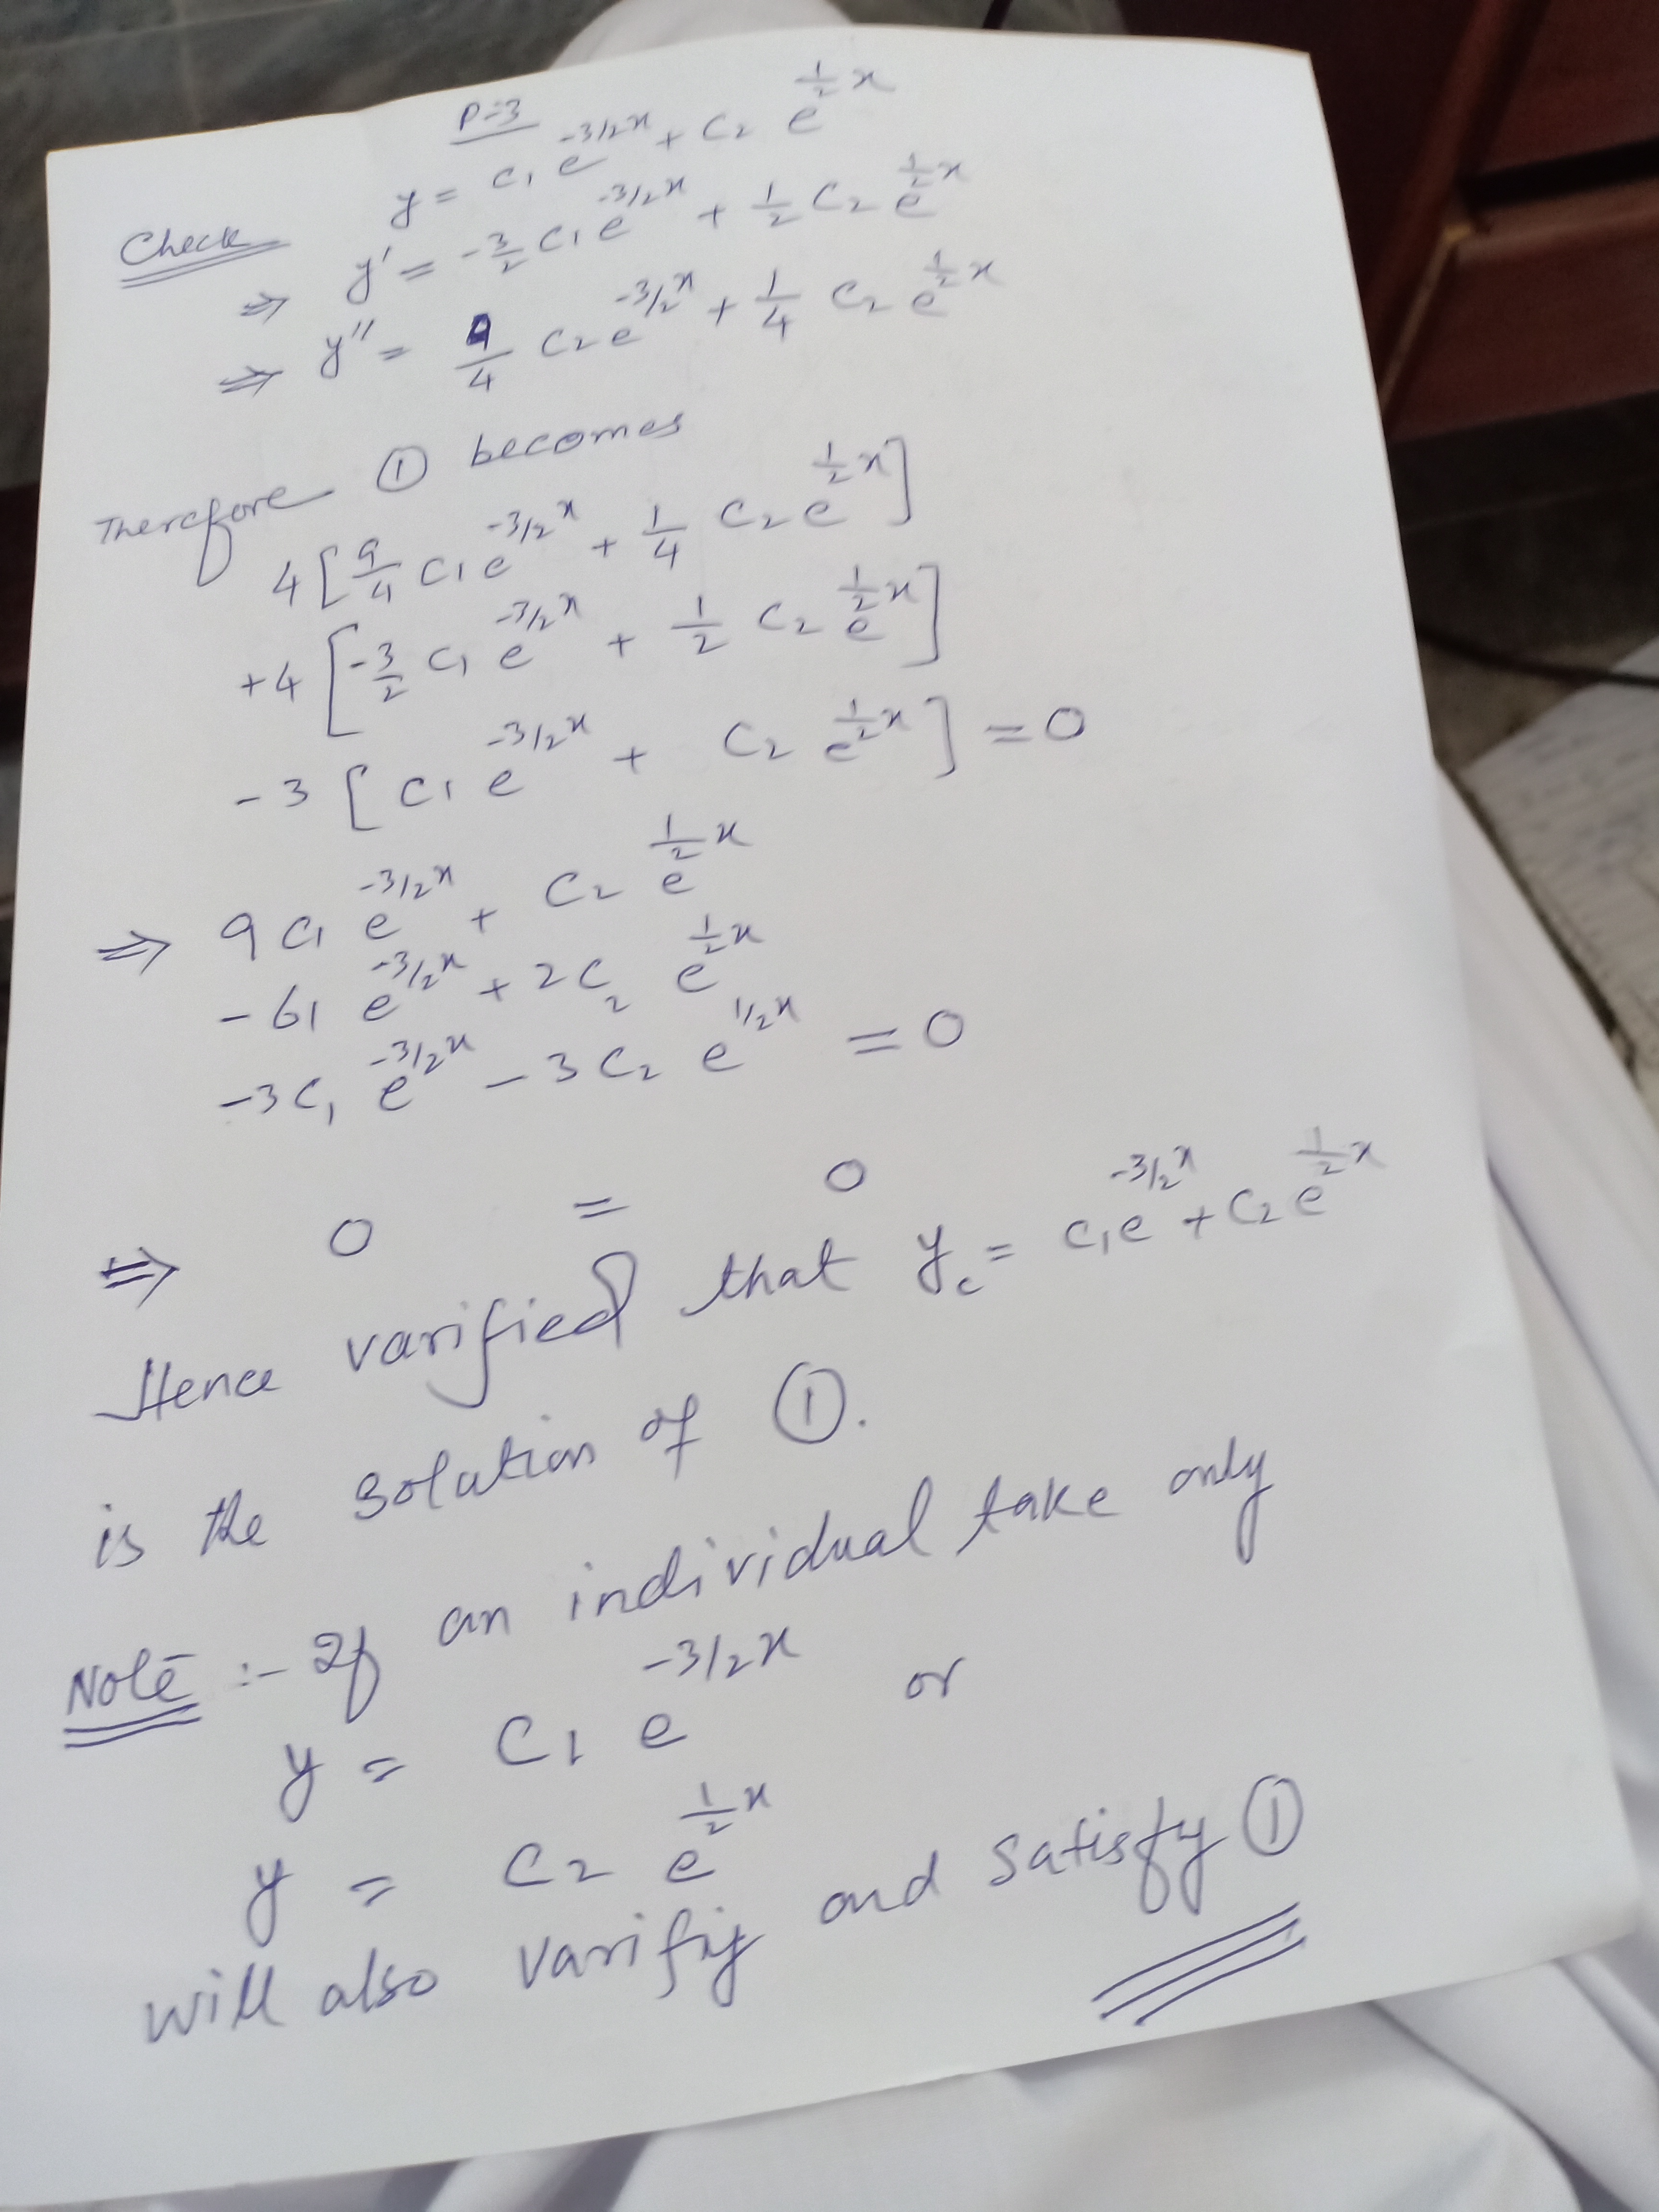 P=3
Check y = c₁ e^{-3/2x} + c₂ e^{1/2 x}
⇒ y' = -3/2 c₁ e^{-3/2x} + 1/2 c₂ e^{1/2 x}
⇒ y'' = 9/4 c₂ e^{-3/2x} + 1/4 c₂ e^{1/2 x}
Therefore ① becomes
4 [9/4 c₁ e^{-3/2x} + 1/4 c₂ e^{1/2 x}]
+4 [-3/2 c₁ e^{-3/2x} + 1/2 c₂ e^{1/2 x}]
-3 [c₁ e^{-3/2x} + c₂ e^{1/2 x}] = 0
⇒ 9c₁ e^{-3/2x} + c₂ e^{1/2 x}
-61 e^{-3/2x} + 2c₂ e^{1/2 x}
-3c₁ e^{-3/2x} - 3c₂ e^{1/2x} = 0
⇒ 0 = 0
Hence varified that y_c = c₁e^{-3/2x} + c₂e^{1/2 x}
is the solution of ①.
Note :- If an individual take only
y = c₁ e^{-3/2x} or
y = c₂ e^{1/2 x}
will also varifiy and satisfy ①